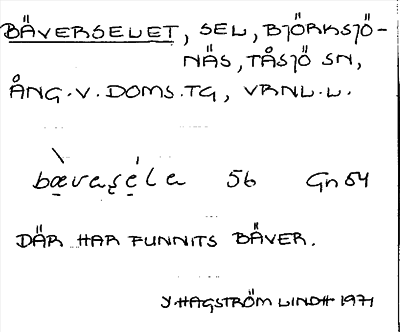 BÄVERSELET, SEL, BJÖRKSJÖ-
NÄS, TÅSJÖ SN,
ÅNG.V.DOMS.TG, VRNL.L.
bævaṣéla 56 Gn54
DÄR HAR FUNNITS BÄVER.
Y HAGSTRÖM LINDH 1971